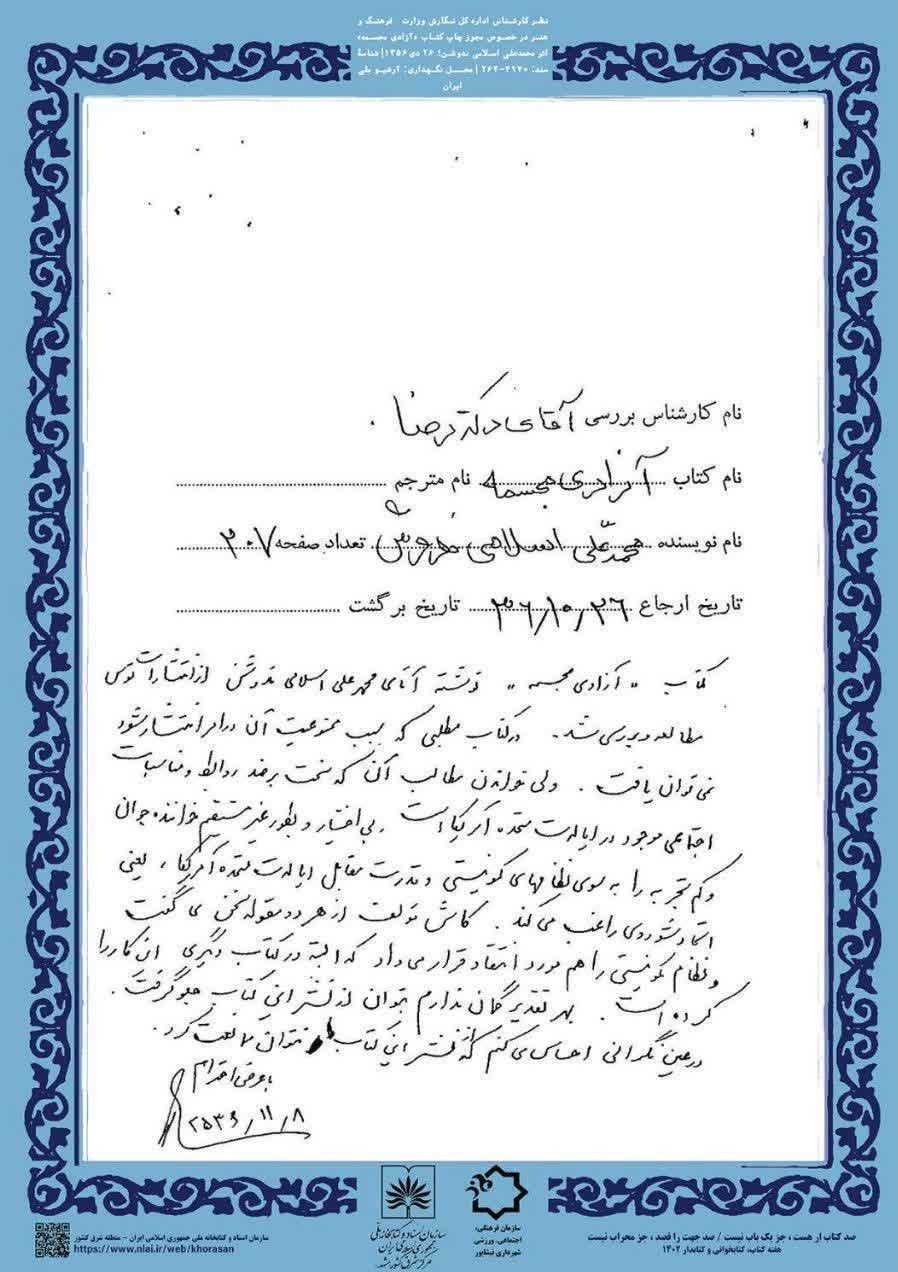 نظر کارشناس اداره کل نگارش وزارت فرهنگ و
هنر در خصوص مجوز چاپ کتاب «آزادی مجسمه»
اثر محمدعلی اسلامی ندوشن؛ ۲۶ دی ۱۳۵۶| شناسهٔ
سند: ۴۹۷۰-۲۶۴ | محل نگهداری: آرشیو ملی
ایران
نام کارشناس بررسی آقای دکتر رضا .
نام کتاب آزادی مجسمه نام مترجم
نام نویسنده محمدعلی اسلامی ندوشن تعداد صفحه ۳۰۷
تاریخ ارجاع ۳۶/۱۰/۲۶ تاریخ برگشت
کتاب " آزادی مجسمه " نوشته آقای محمد علی اسلامی ندوشن از انتشارات توس
مطالعه و بررسی شد . در کتاب مطلبی که سبب ممنوعیت آن در امر انتشار شود
نمی توان یافت . ولی خواندن مطالب آن که سخت بر ضد روابط و مناسبات
اجتماعی موجود در ایالات متحده آمریکا است ، بی اختیار و بطور غیر مستقیم خواننده جوان
و کم تجربه را به سوی نظامهای کمونیستی و قدرت مقابل ایالات متحده آمریکا ، یعنی
اتحاد شوروی راغب می کند . کاش مولف از هر دو مقوله سخن می گفت
و نظام کمونیستی را هم مورد انتقاد قرار می داد که البته در کتاب دیگری این کار را
کرده است . بهر تقدیر گمان ندارم بتوان از نشر این کتاب جلو گرفت .
در عین نگرانی احساس می کنم که از نشر این کتاب نتوان ممانعت کرد .
با عرض احترام
۲۵۳۶/۱۱/۸
سازمان اسناد و کتابخانه ملی جمهوری اسلامی ایران - منطقه شرق کشور
https://www.nlai.ir/web/khorasan
سازمان اسناد و کتابخانه ملی
جمهوری اسلامی ایران
مرکز شرق کشور - مشهد
سازمان فرهنگی،
اجتماعی، ورزشی
شهرداری نیشابور
صد کتاب ار هست، جز یک باب نیست / صد جهت را قصد، جز محراب نیست
هفته کتاب، کتابخوانی و کتابدار ۱۴۰۲